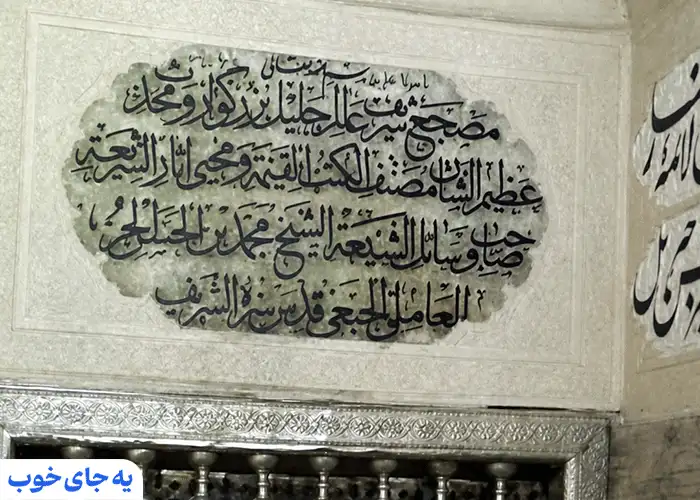 مضجع شریف عالم جلیل بزرگوار و محدث
عظیم الشان مصنف الکتب القیمة و محیی آثار الشریعة
صاحب وسائل الشیعة الشیخ محمد بن الحسن الحر
العاملی الجبعی قدس سره الشریف
الائمة
جبریل
یه جای خوب